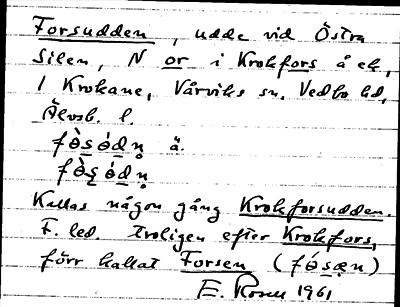 Forsudden, udde vid Östra
Silen, N or i Krokfors å ek,
1 Krokane, Vårviks sn. Vedbo hd,
Älvsb. l.
fə̀sə́dn̥ ä.
fə̀sə́dn̥
Kallas någon gång Krokforsudden.
F. led. troligen efter Krokfors,
förr kallat Forsen (fə́sæn)
E. Rosell 1961